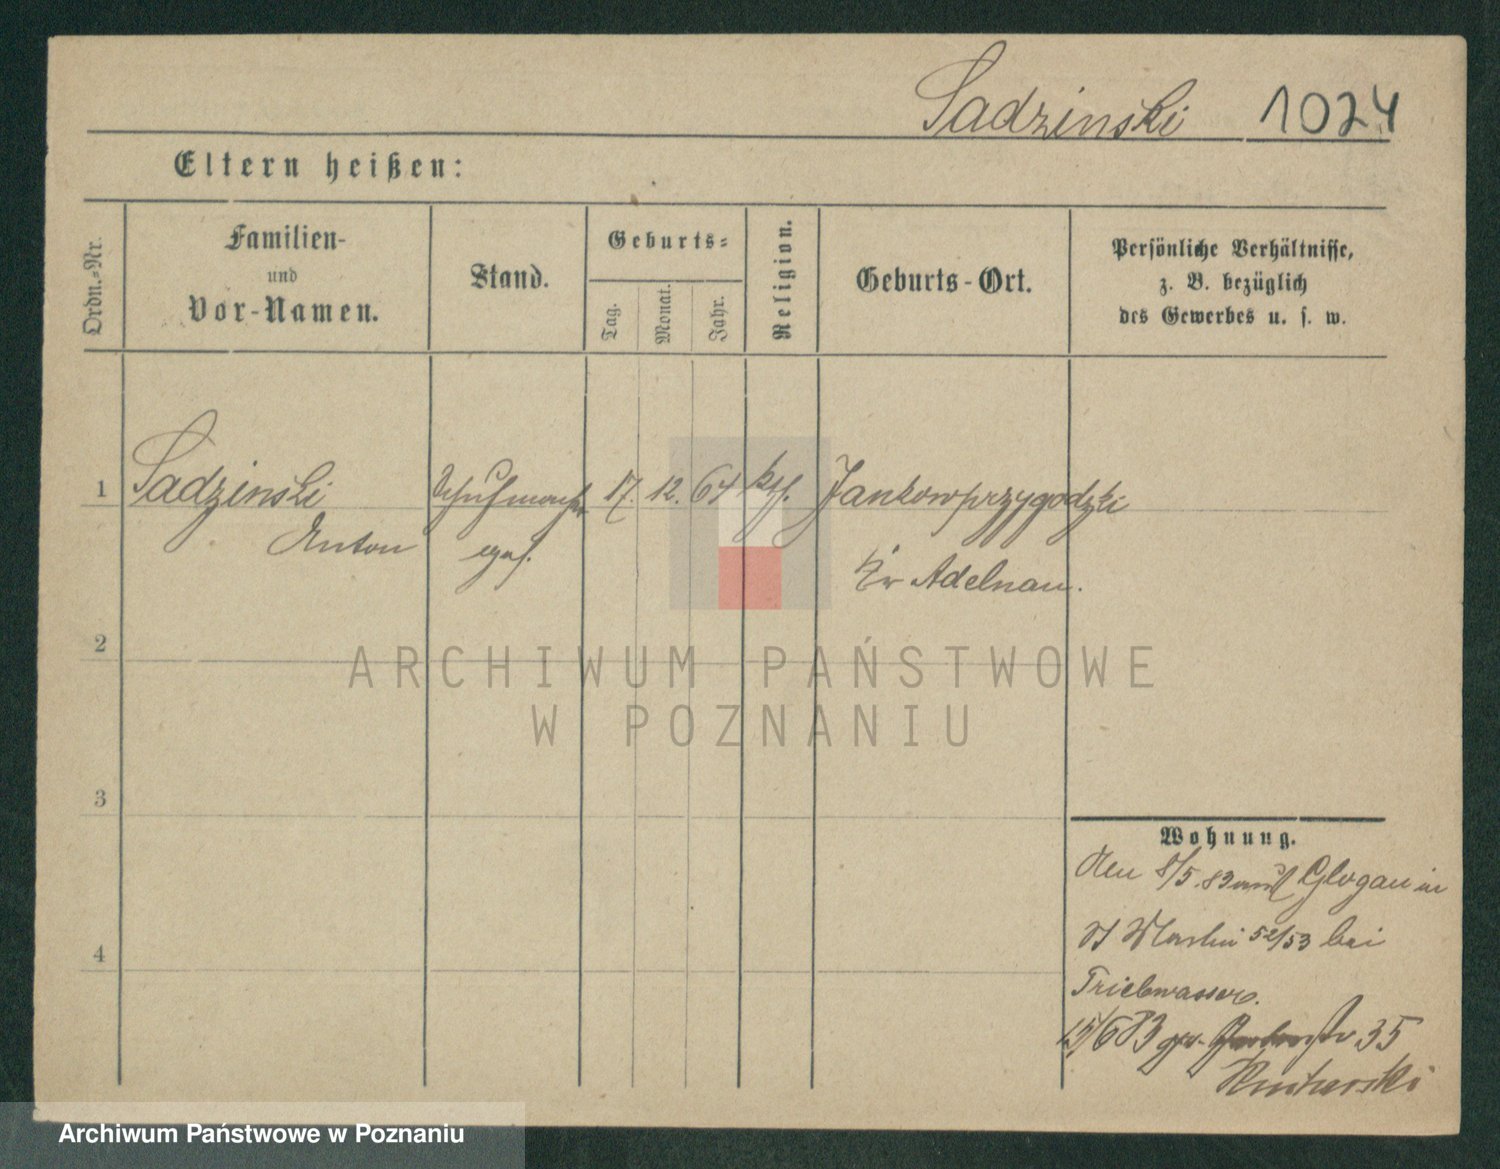 Sadzinski 1024
Eltern heißen:
Ordn.-Nr.
Familien-
und
Vor-Namen.
Stand.
Geburts-
Tag.
Monat.
Jahr.
Religion.
Geburts-Ort.
Persönliche Verhältnisse,
z. B. bezüglich
des Gewerbes u. s. w.
1 Sadzinski Schuhmacher 17. 12. 64 kth. Jankowprzygodzki
Anton
Kr Adelnau.
2
3
4
Wohnung.
Den 8/5. 83 aus Glogau in
St Martin 52/53 bei
Triebwasser.
15/6 83 35
ARCHIWUM PAŃSTWOWE
W POZNANIU
Archiwum Państwowe w Poznaniu